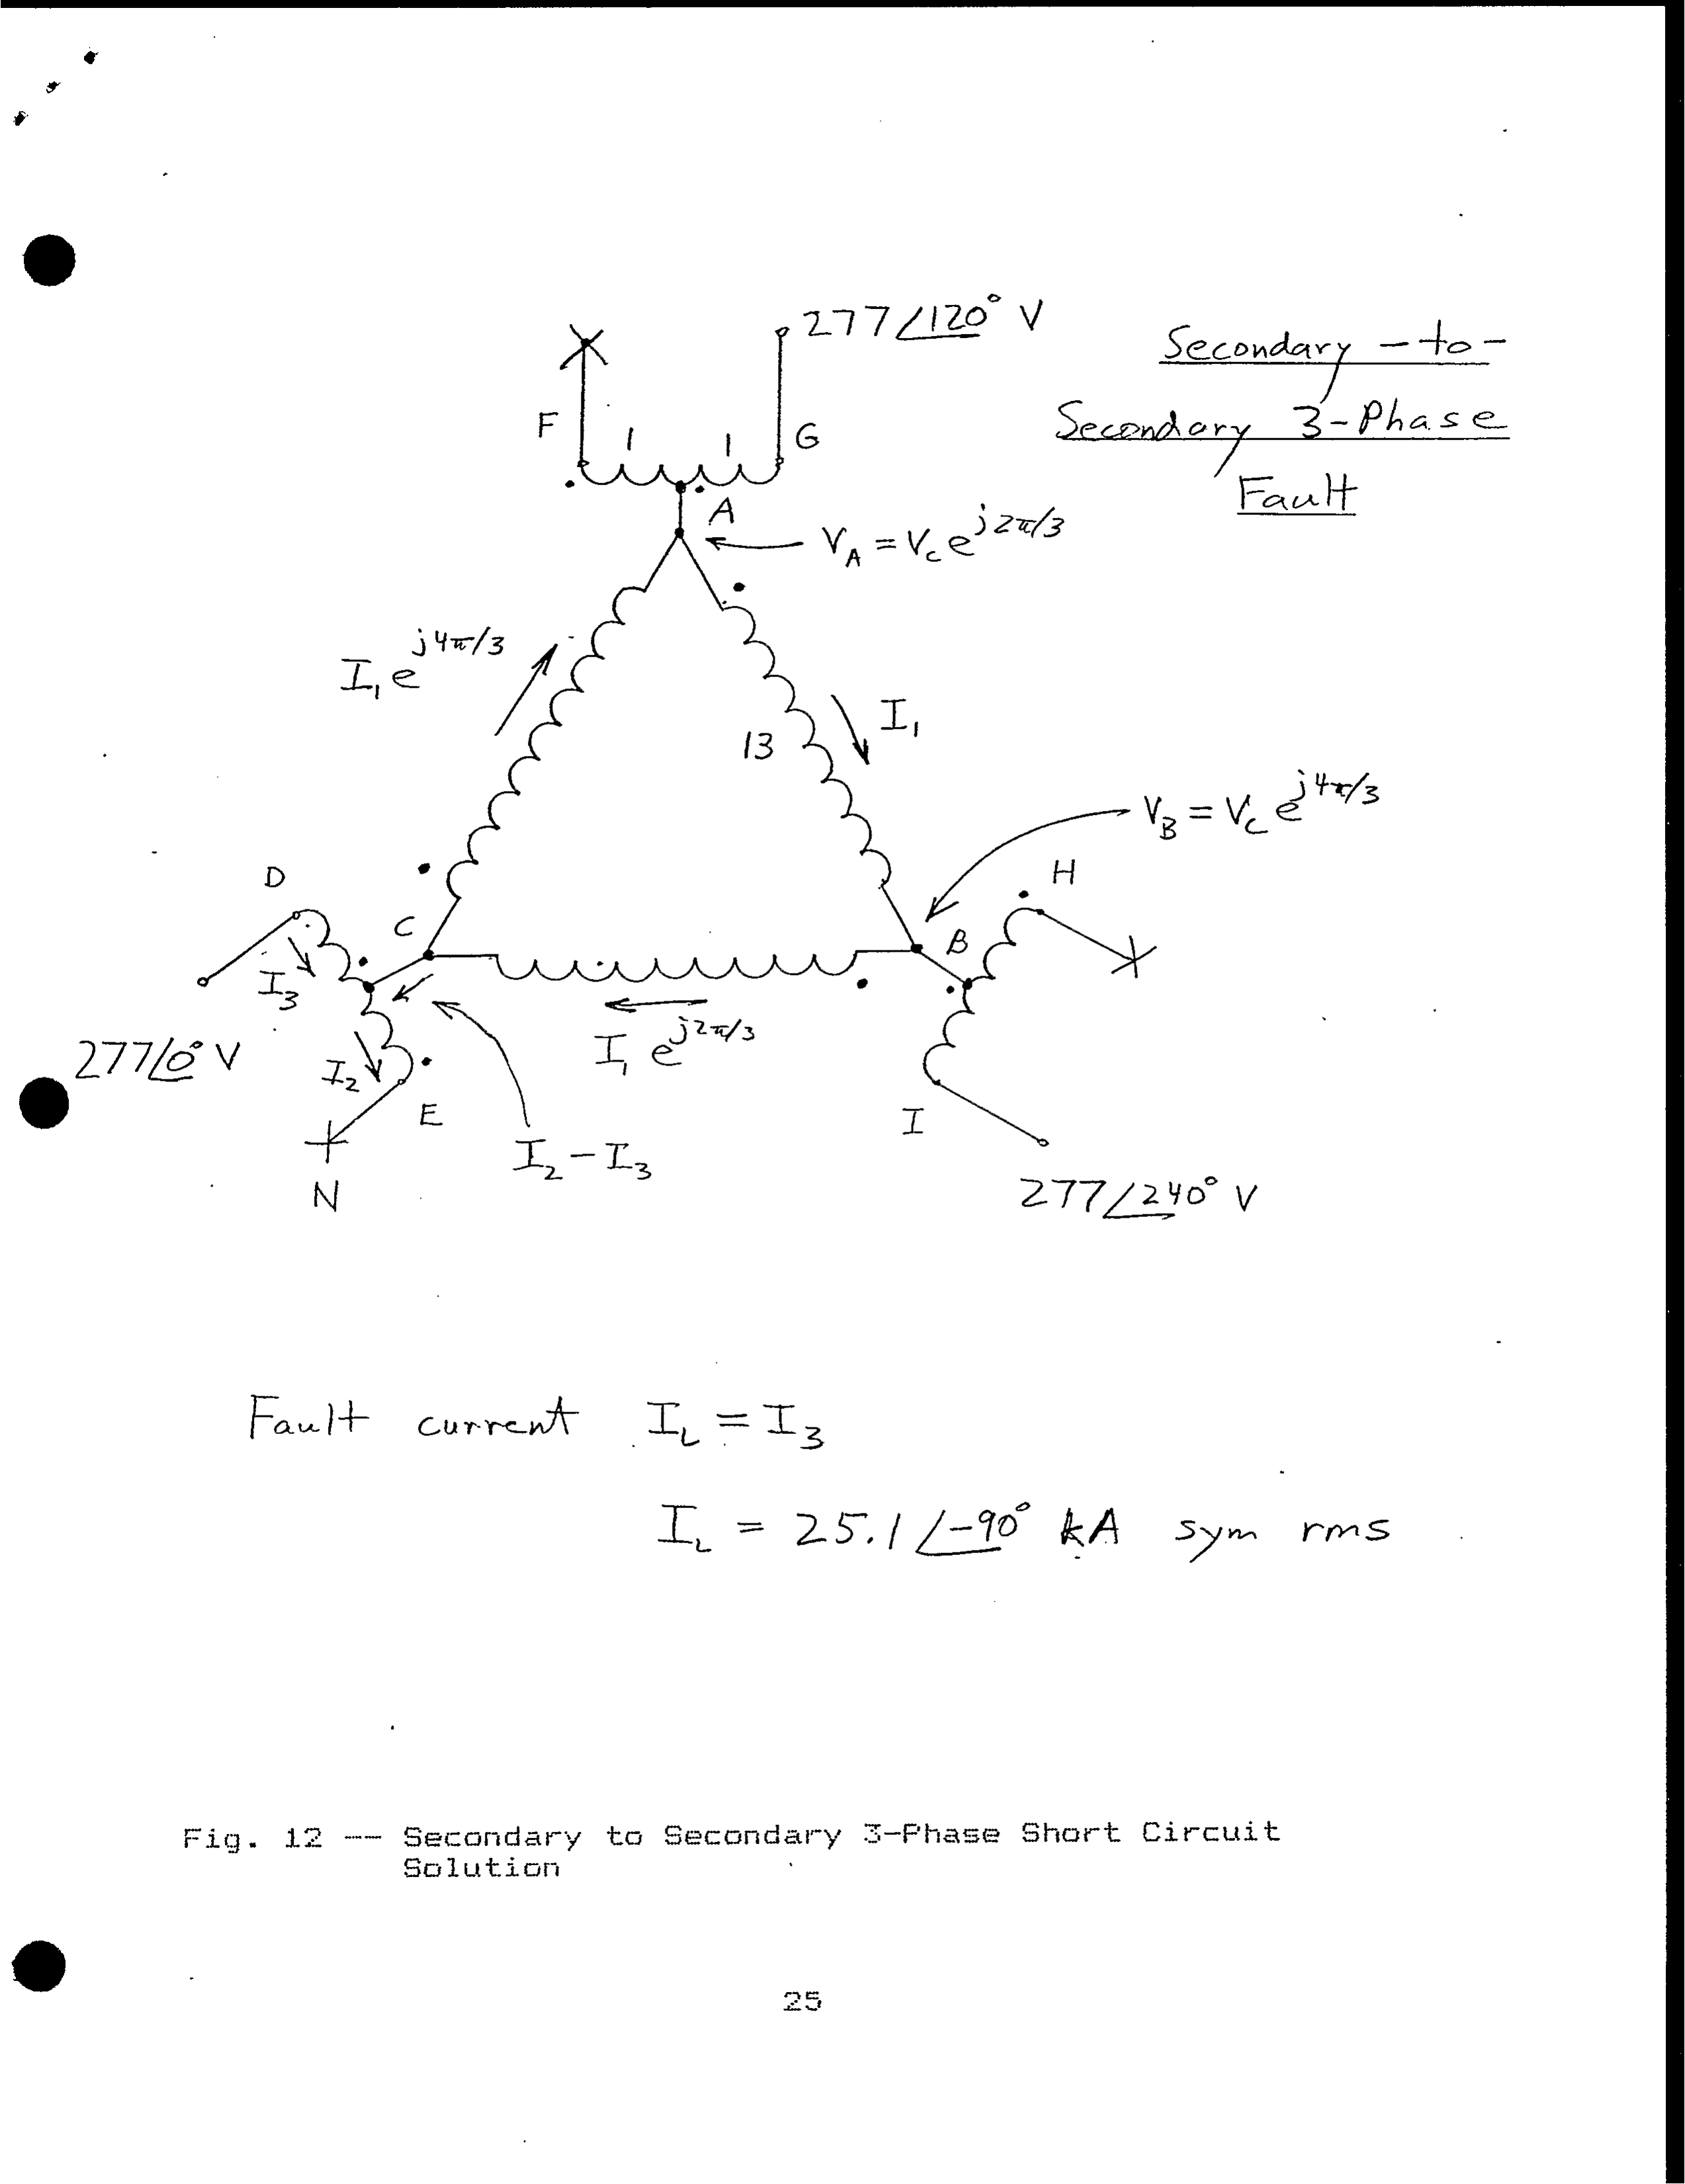 277∠120° V
Secondary - to -
Secondary 3-Phase
Fault
F
1 1
G
A
V_A = V_c e^{j2π/3}
I_1 e^{j4π/3}
I_1
13
V_B = V_C e^{j4π/3}
D
H
C
B
I_3
277∠0° V
I_2
I_1 e^{j2π/3}
E
I
N
I_2 - I_3
277∠240° V
Fault current I_L = I_3
I_L = 25.1∠-90° kA sym rms
Fig. 12 -- Secondary to Secondary 3-Phase Short Circuit
Solution
25